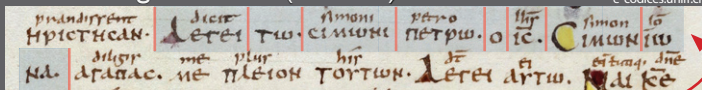 prandissent dicit simoni petro ihs simon io
ΗΡΙCΤΗCΑΝ. ΛΕΓΕΙ ΤѠ. CΙΜѠΝΙ ΠΕΤΡѠ. Ο ΙC. CΙΜѠΝ ΙѠ
diligis me plus his dt ei dne
ΝΑ. ΑΓΑΠΑC. ΜΕ ΠΛΕΙΟΝ ΤΟΥΤѠΝ. ΛΕΓΕΙ ΑΥΤѠ. ΝΑΙ ΚΕ